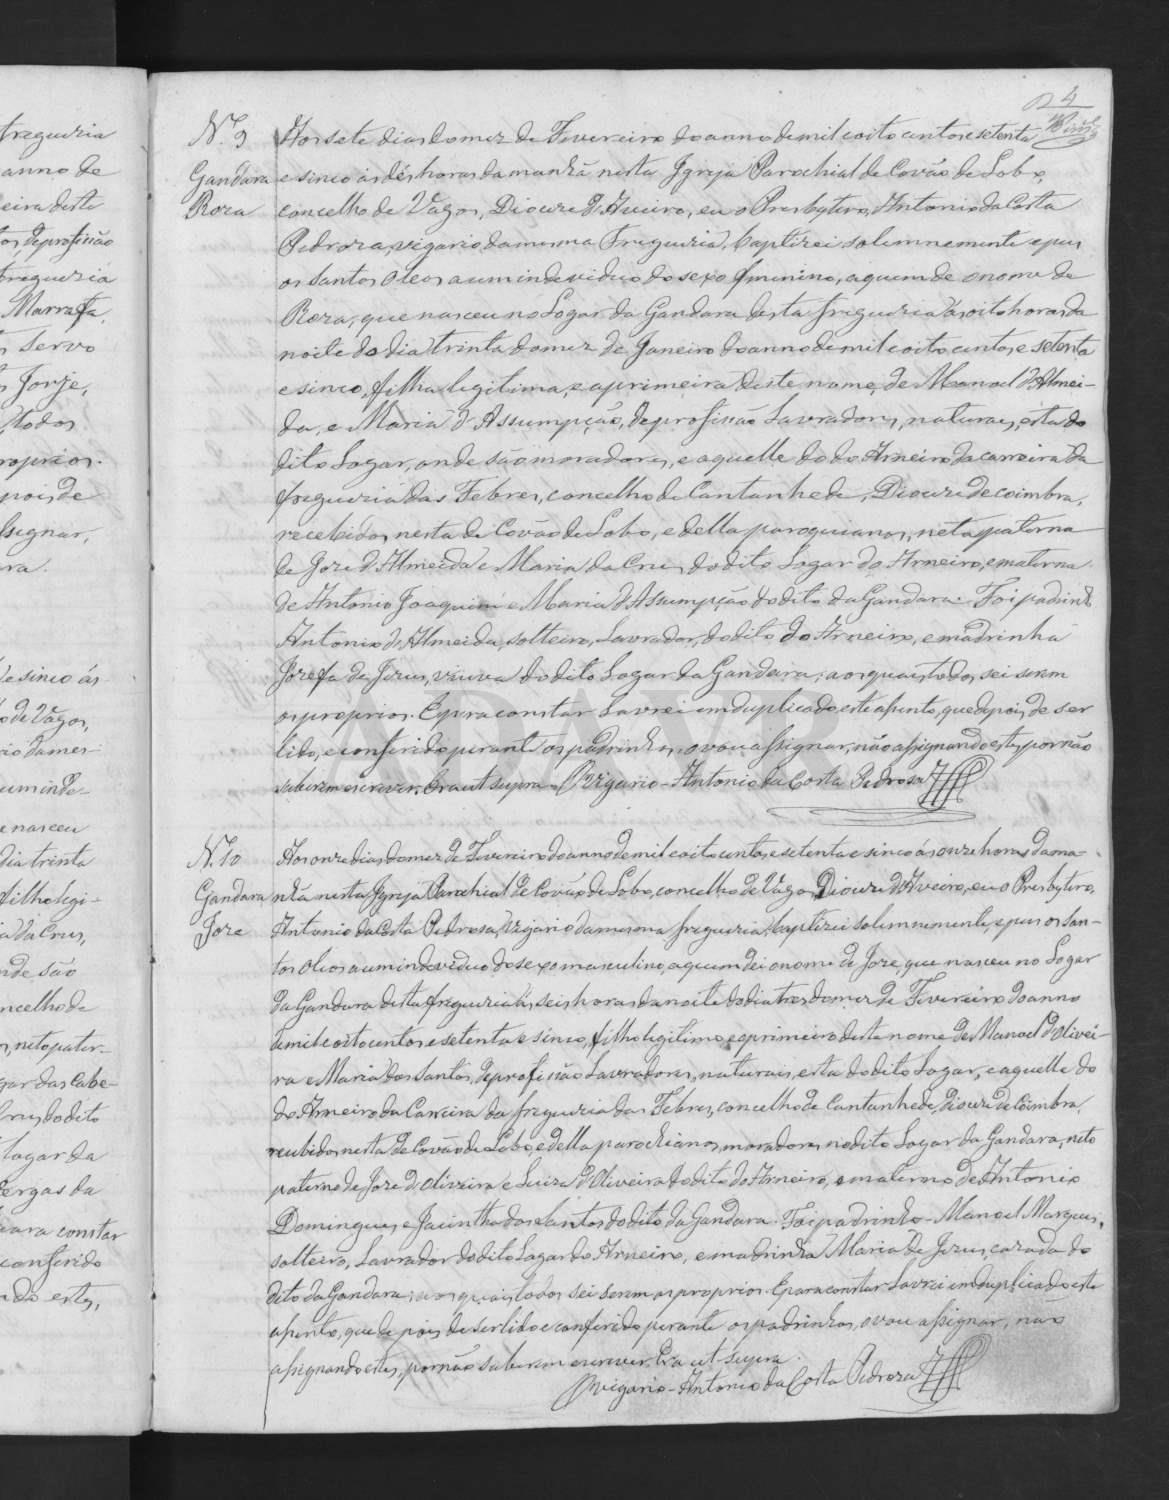 4
N.º 9
Gandara
Roza
Aos sete dias do mez de Fevereiro do anno de mil e oito centos e setenta
e sinco ás dés horas da manhã nesta Igreja Parochial de Covão de Lobo,
concelho de Vagos, Diocese d'Aveiro, eu o Presbytero, Antonio da Costa
Pedroza, vigario da mesma Freguezia, baptizei solemnemente e pus
os Santos Oleos a um indeviduo do sexo feminino, a quem dei o nome de
Roza, que nasceu no Logar da Gandara desta freguezia ás oito horas da
noite do dia trinta do mez de Janeiro do anno de mil e oito centos e setenta
e sinco, filha legitima, e a primeira deste nome, de Manoel d'Almei-
da, e Maria d'Assumpção, de profissão Lavradores, naturaes, esta do
dito Logar, onde são moradores, e aquelle do do Arneiro da carreira da
freguezia das Febres, concelho de Cantanhede, Diocese de coimbra,
recebidos nesta de Covão de Lobo, e della paroquianos, neta paterna
de Joze d'Almeida e Maria da Cruz do dito Logar do Arneiro, e materna
de Antonio Joaquim e Maria d'Assumpção do dito da Gandara. Foi padrinho
Antonio d'Almeida, solteiro, Lavrador, do dito do Arneiro, e madrinha
Jozefa de Jezus, viuva do dito Logar da Gandara; aos quais todos sei serem
os proprios. E para constar Lavrei em duplicado este assento, que depois de ser
lido, e conferido perante os padrinhos, o vou assignar, não assignando estes por não
saberem escrever. Era ut supra. O Vigario - Antonio da Costa Pedroza
N.º 10
Gandara
Joze
Aos onze dias do mez de Fevereiro do anno de mil e oito centos e setenta e sinco ás onze horas da ma-
nhã nesta Igreja Parochial de Covão de Lobo, concelho de Vagos, Diocese d'Aveiro, eu o Presbytero,
Antonio da Costa Pedrosa, Vigario da mesma freguezia, baptizei solemnemente, e pus os San-
tos Oleos a um indeviduo do sexo masculino, a quem dei o nome de Joze, que nasceu no Logar
da Gandara desta freguezia ás seis horas da noite do dia tres do mez de Fevereiro do anno
de mil e oito centos e setenta e sinco, filho legitimo e o primeiro deste nome de Manoel d'Olivei-
ra e Maria dos Santos, de profissão Lavradores, naturais, esta do dito Logar, e aquelle do
do Arneiro da Carreira da freguezia das Febres, concelho de Cantanhede, diocese de Coimbra,
recebidos nesta de Covão de Lobo, e della parochianos, moradores no dito Logar da Gandara, neto
paterno de Joze d'Oliveira e Luiza d'Oliveira do dito do Arneiro, e materno de Antonio
Domingues e Jacintha dos Santos do dito da Gandara. Foi padrinho - Manoel Marques,
solteiro, Lavrador do dito Logar do Arneiro, e madrinha Maria de Jezus, cazada do
dito da Gandara; aos quais todos sei serem os proprios. E para constar Lavrei em duplicado este
assento, que depois de ser lido e conferido perante os padrinhos, o vou assignar, não
assignando estes, por não saberem escrever. Era ut supra.
O vigario - Antonio da Costa Pedroza